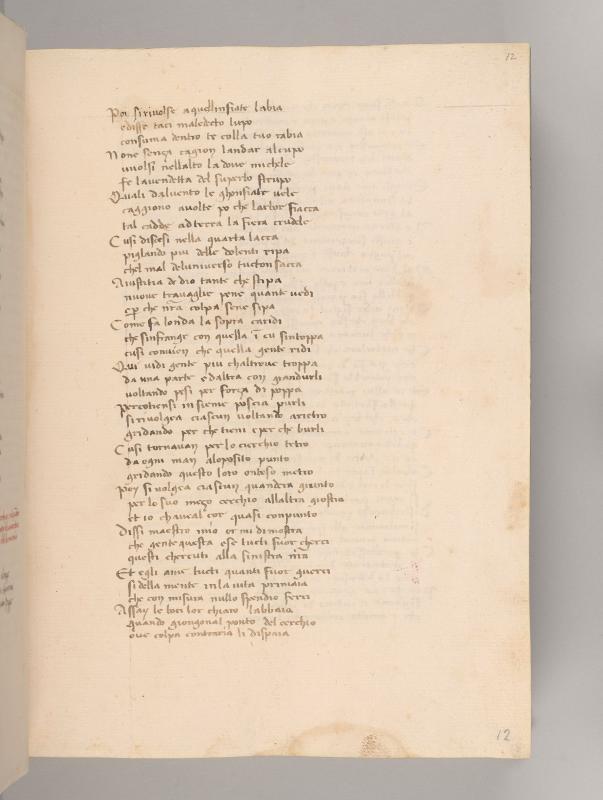 12
Poi si rivolse aquellinfiate labia
edisse taci maledecto lupo
consuma dentro te colla tuo rabia
None senza cagion landar alcupo
vuolsi nellalto la dove michele
fe lavendetta del superbo strupo
Quali dalvento le ghonfiate vele
caggiono avolte po che lalbor fiacca
tal cadde adterra la fiera crudele
Cusi disciesi nella quarta lacca
piglando piu delle dolenti ripa
chel mal deluniverso tucton sacca
Aiustitia de dio tante che stipa
nuove travaglie pene quante vedi
et per che nra colpa sene sipa
Come fa londa la sopra caridi
che sinfrange con quella in cu sintoppa
cusi convien che quella gente ridi
Qui vidi gente piu chaltrove troppa
da una parte e daltra con grandurli
voltando pesi per forza di poppa
Percotiensi in sieme poscia purli
si rivolgea ciascun voltando arietro
gridando per che tieni e per che burli
Cusi tornavan per lo cierchio tetro
da ogni man aloposito punto
gridando questo loro ontoso metro
Poy si volgea ciascun quandera giunto
per lo suo mezo cerchio allaltra giostra
et io chaveal cor quasi conpunto
Dissi maestro mio or mi dimostra
che gente questa e se tucti fuor cherci
questi chercuti alla sinistra nra
Et egli ame tucti quanti fuor guerci
si della mente inla vita primaia
che con misura nullo spendio ferci
Assay le boci lor chiaro labbaia
quando giongonal ponto del cerchio
ove colpa contraria li dispaia
12